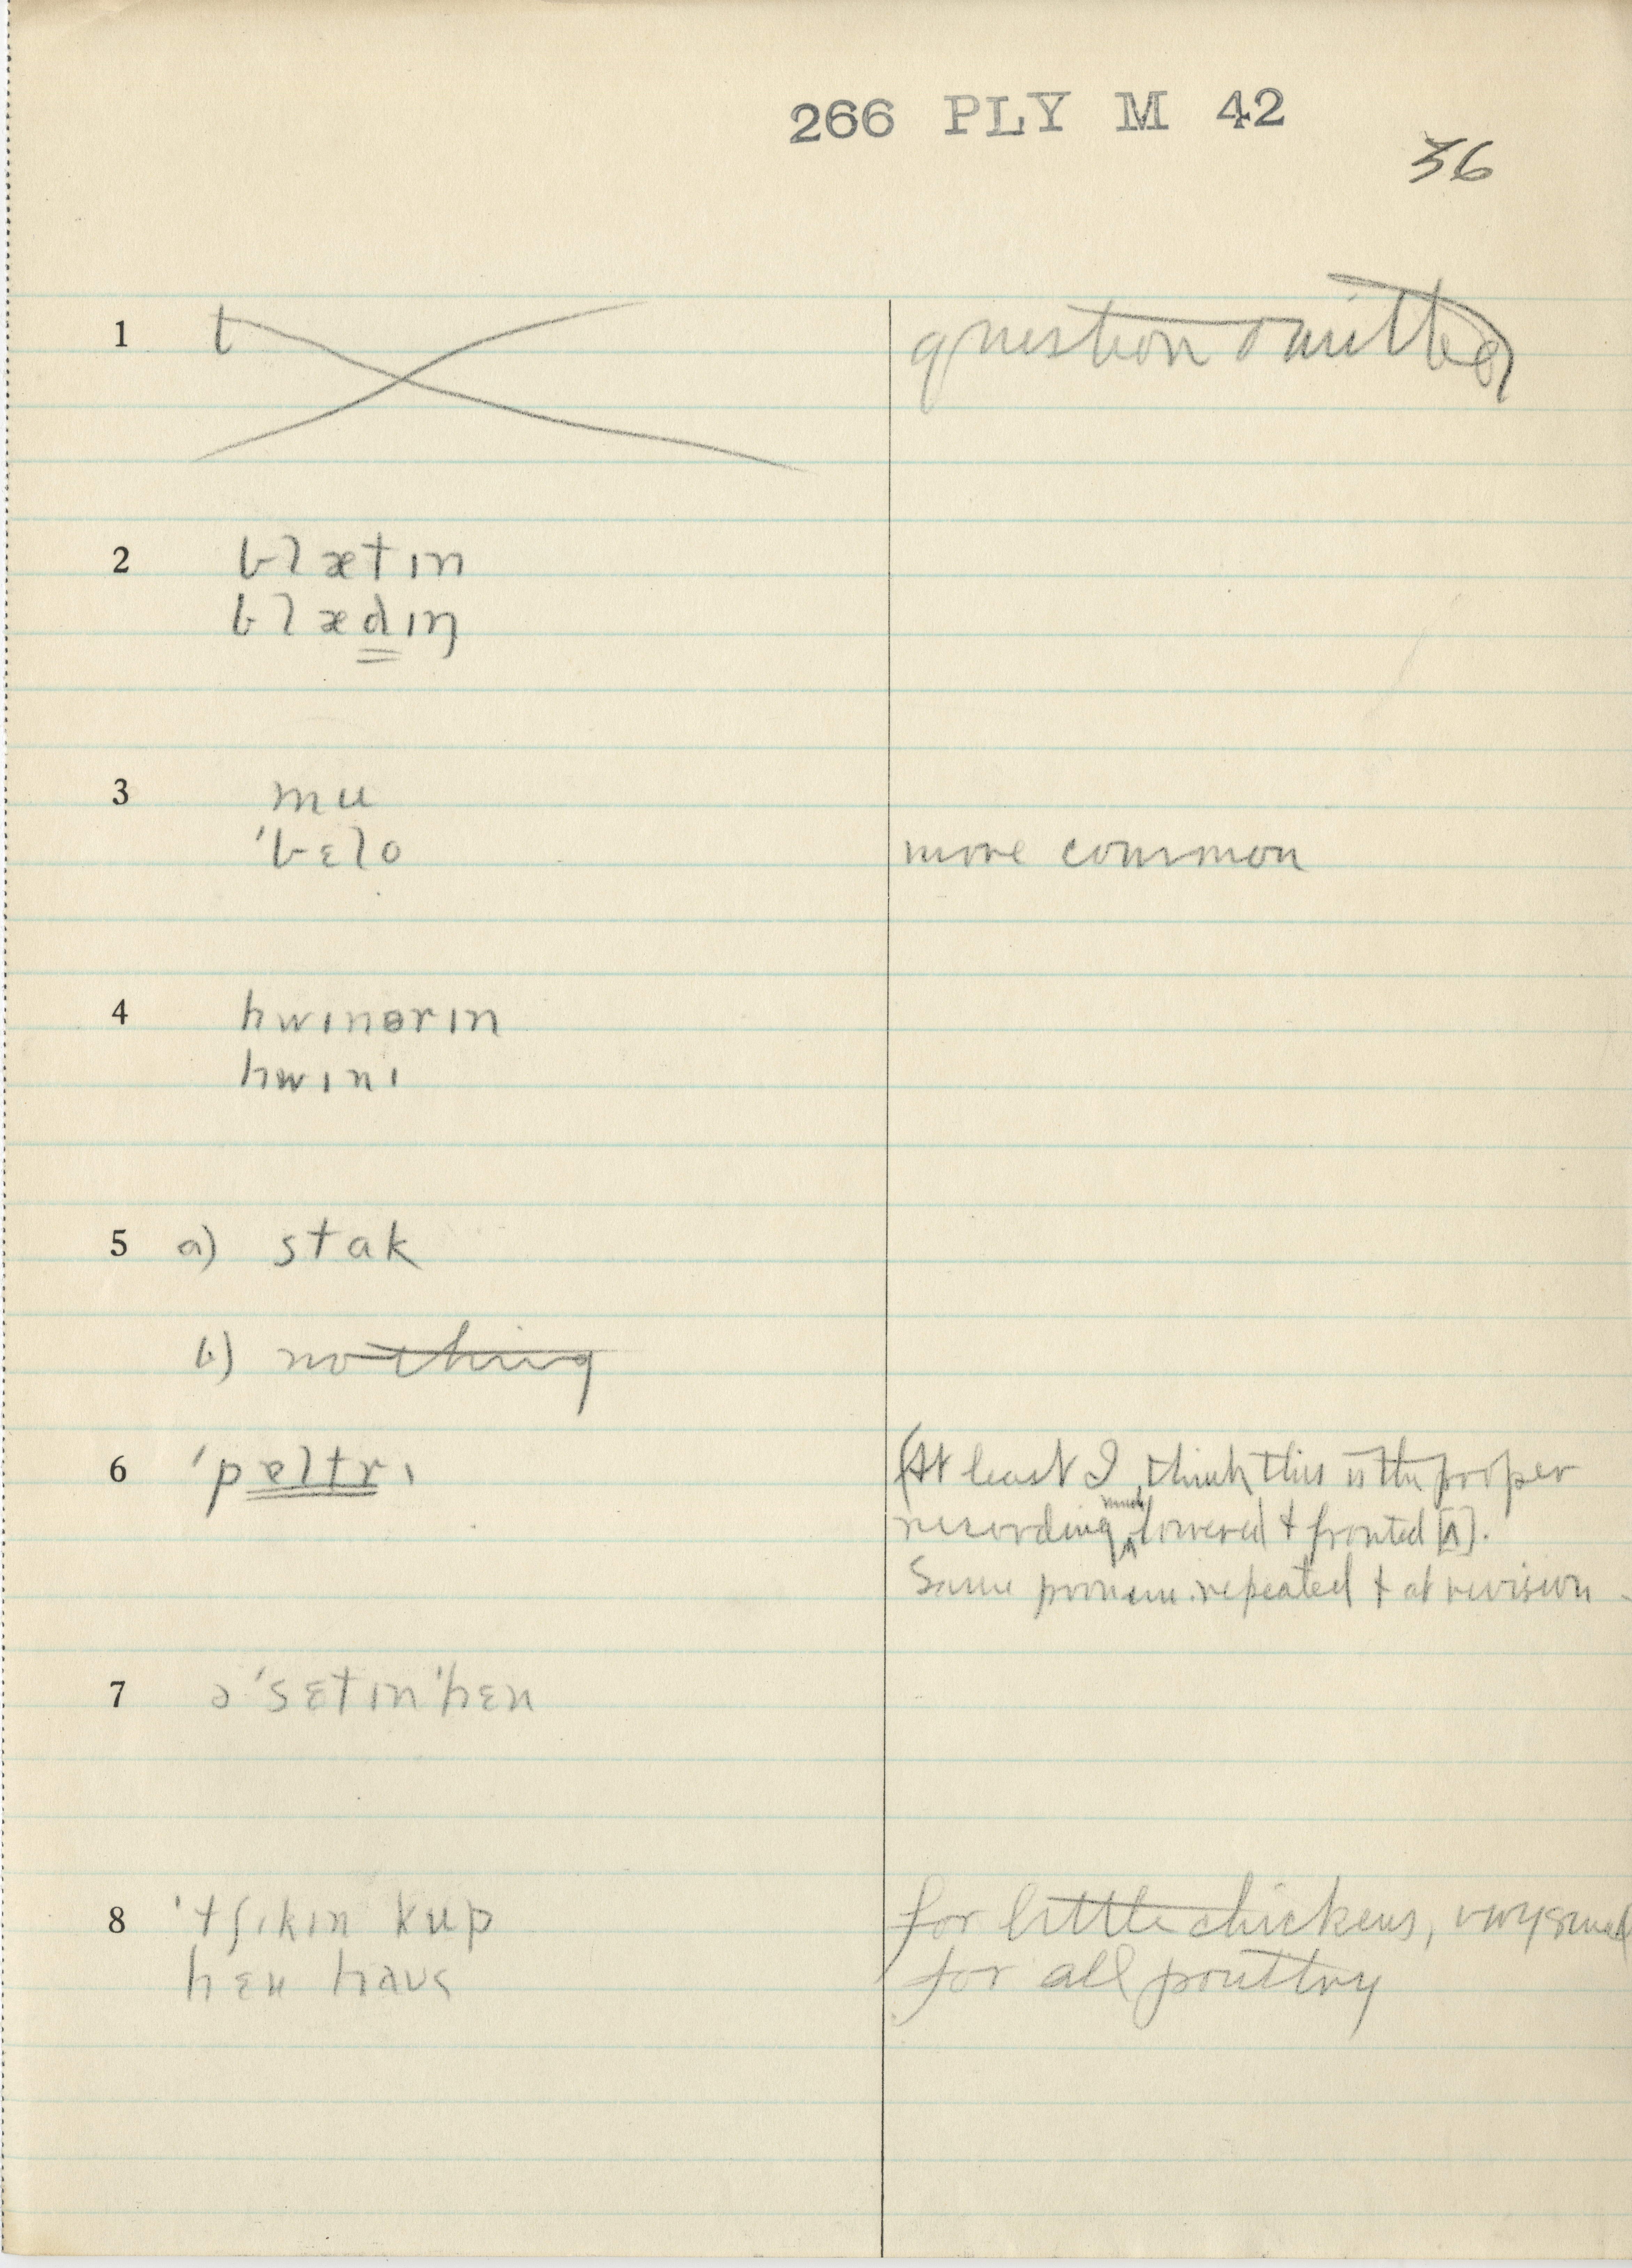 266 PLY M 42
36
1 t question omitted
2 blætɪn
blædɪŋ
3 mu
ˈbɛlo more common
4 hwɪnərɪn
hwɪnɪ
5 a) stak
b) nothing
6 ˈpɐltrɪ (At least I think this is the proper
recording, much lowered & fronted [ʌ].
Same pronunc. repeated & at revision
7 ə ˈsɛtɪn ˈhɛn
8 ˈtʃɪkɪn kup for little chickens, very small
hɛn haus for all poultry